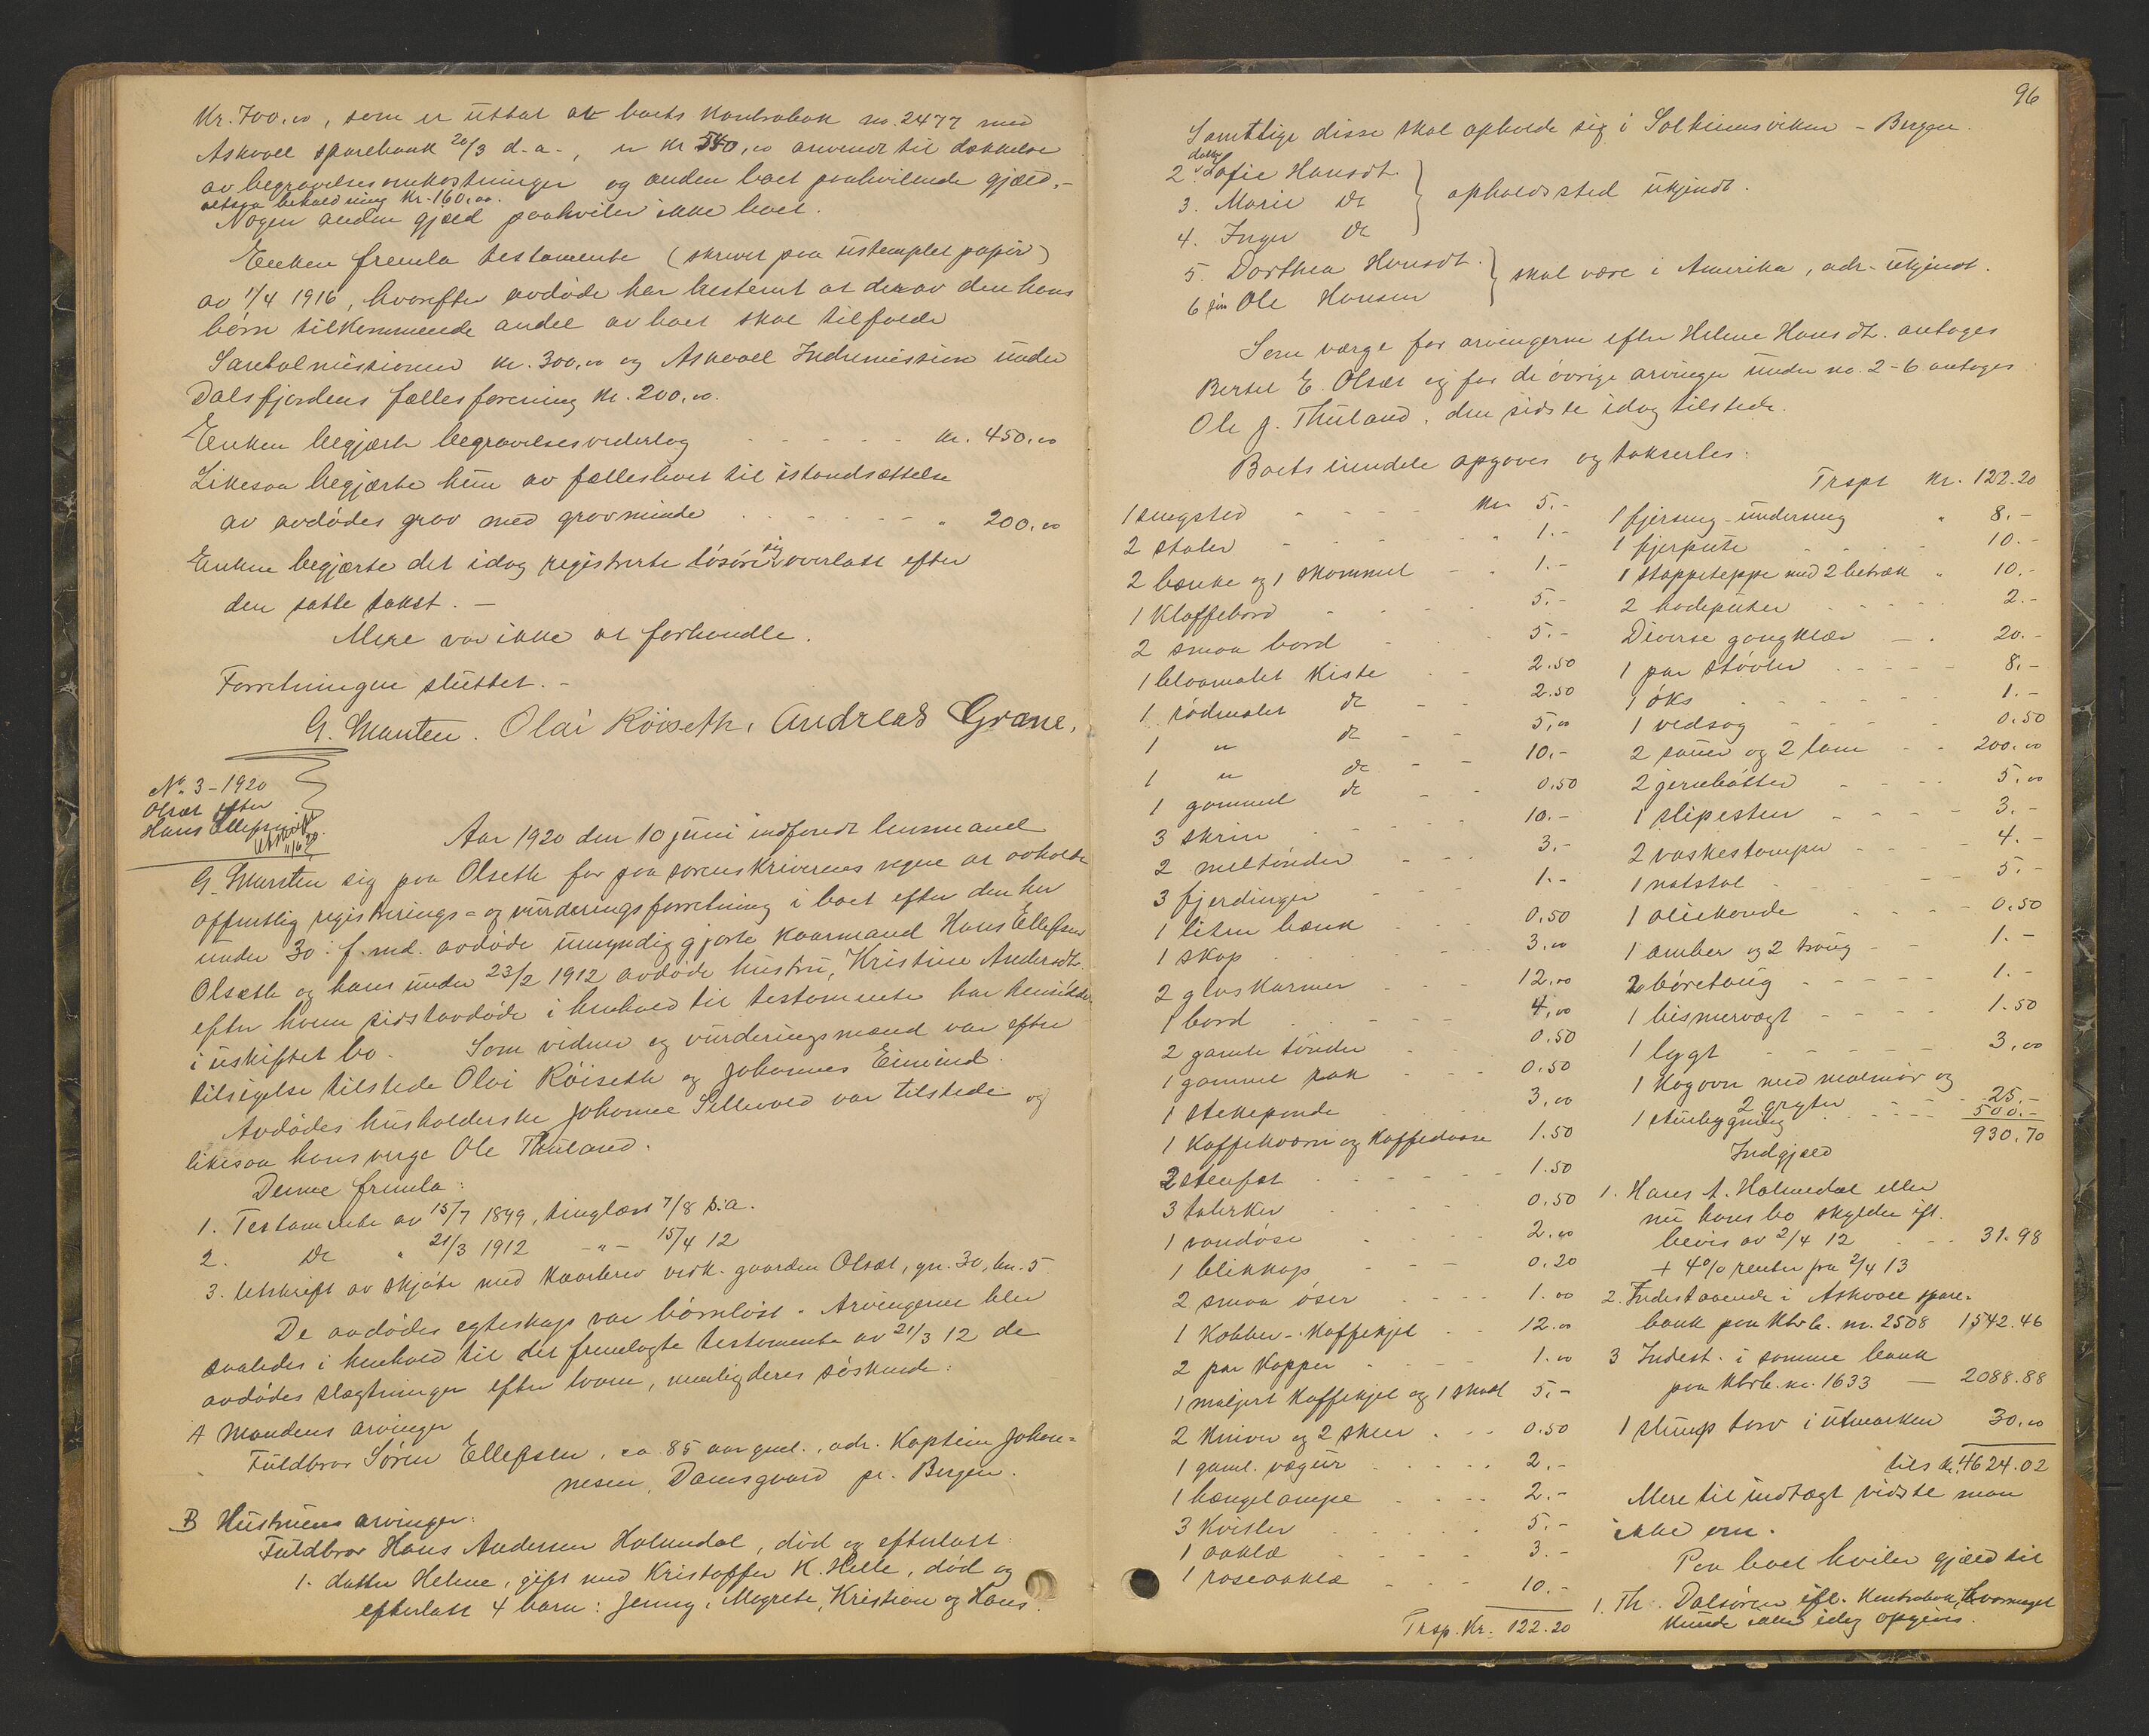 Kr. 700,00, som er uttat av boets Kontrabok no. 2477 med
Askvoll sparebank 20/3 d.a., er kr 540,00 anvendt til dækkelse
av begravelsesomkostninger og anden boet paahvilende gjæld,-
altsaa beholdning Kr. 160,00.
Nogen anden gjæld paahviler ikke boet.
Enken fremla testamente (skrevet paa ustemplet papir)
av 1/4 1916, hvorefter avdøde har bestemt at der av den hans
børn tilkommende andel av boet skal tilfalde
Santalmissionen kr. 300,00 og Askvoll Indremission under
Dalsfjordens fællesforening kr. 200,00.
Enken begjærte begravelsesvederlag - - - - - kr. 450,00
Likesaa begjærte hun av fællesboet til istandsættelse
av avdødes grav med gravminde - - - - - " 200,00
Enken begjærte det idag registrerte løsøre sig overlatt efter
den satte takst. -
Mere var ikke at forhandle.
Forretningen sluttet. -
G. Maurten. Olai Røiseth, Andreas Grane.
No. 3 - 1920
Olsæt efter
Hans Ellefsen
Utskrift
11/6 20.
Aar 1920 den 10 juni indfandt lensmand
G. Maurten sig paa Olseth for paa sorenskriverens vegne at avholde
offentlig registrerings- og vurderingsforretning i boet efter den her
under 30. f. md. avdøde umyndiggjorte kaarmand Hans Ellefsen
Olseth og hans under 23/2 1912 avdøde hustru, Kristine Andersdt.
efter hvem sidstavdøde i henhold til testamente har hensiddet
i uskiftet bo. Som vidner og vurderingsmænd var efter
tilsigelse tilstede Olai Røiseth og Johannes Eimind.
Avdødes husholderske Johanne Sellevold var tilstede og
likesaa hans verge Ole Thuland.
Denne fremla:
1. Testamente av 15/7 1899, tinglæst 7/8 s.a.
2. Do " 21/3 1912 -"- 15/4 12
3. Utskrift av skjøte med kaarbrev vedk. gaarden Olsæt, gn. 30, bn. 5
De avdødes egteskap var barnløst. Arvingerne blev
saaledes i henhold til det fremlagte testamente av 21/3 12 de
avdødes slegtninger efter loven, nemlig deres søskende:
A Mandens arvinger
Fuldbror Søren Ellefsen, ca. 85 aar gml., adr. Kaptein Johan-
nesen, Damsgaard pr. Bergen.
B Hustruens arvinger:
Fuldbror Hans Andersen Holmedal, død og efterlatt:
1. datter Helene, gift med Kristoffer K. Helle, død og
efterlatt 4 barn: Jenny, Magrete, Kristian og Hans.
96
Samtlige disse skal opholde sig i Solheimsviken - Bergen.
2. datter Sofie Hansdt.
3. Marie do
4. Inger do
opholdssted ukjendt.
5. Dorthea Hansdt.
6 søn Ole Hansen
skal være i Amerika, adr. ukjendt.
Som værge for arvingerne efter Helene Hansdt. antoges
Bertel E. Olsæt og for de øvrige arvinger under no. 2-6 antoges
Ole J. Thuland, den sidste idag tilstede.
Boets eiendele opgaves og taksertes:
1 sengsted - - - - kr 5.-
2 stoler - - - - " 1.-
2 bænke og 1 skammel - " 1.-
1 Klaffebord - - - 5.-
2 smaa bord - - - 5.-
1 blaamalet Kiste - - 2.50
1 rødmalet do - - 2.50
1 " do - - 5,00
1 " do - - 10.-
1 gammel do - - 0.50
3 skrin - - - - 10.-
2 meltønder - - - 3.-
3 fjerdinger - - - 1.-
1 liten bænk - - - 0.50
1 skap - - - - 3,00
2 glaskarmer - - - 12,00
1 bord - - - - 4,00
2 gamle tønder - - - 0.50
1 gammel rok - - - 0.50
1 stekepande - - - 3,00
1 Kaffekværn og Kaffedaase 1.50
2 stenfat - - - - 1.50
3 tallerker - - - 0.50
1 vandøse - - - 2,00
1 blikkop - - - 0,20
2 smaa øser - - - 1.00
1 Kobber-Kaffekjel - - 12,00
2 par Kopper - - - 1.00
1 maljert Kaffekjel og 1 skaal 5.-
2 Kniver og 2 skeer - - 0.50
1 gaml. vægur - - - 2.-
1 hængelampe - - - 2.-
3 Kvitler - - - 5.-
1 aaklæ - - - 3.-
1 roseaaklæ - - - 10.-
Trsp. Kr. 122.20
Trspt kr. 122.20
1 fjerseng-underseng " 8.-
1 fjerpute - - - - 10.-
1 stoppeteppe med 2 betræk " 10.-
2 hodeputer - - - 2.-
Diverse gangklær - . 20.-
1 par støvler - - - 8.-
1 øks - - - - 1.-
1 vedsag - - - - 0.50
2 sauer og 2 lam - - 200,00
2 jernbøtter - - - 5,00
1 slipesten - - - 3.-
2 vaskestamper - - - 4.-
1 natstol - - - 5.-
1 oliekande - - - 0.50
1 ambar og 2 traug - - 1.-
2 børetaug - - - 1.-
1 bismervægt - - - 1.50
1 lygt - - - - 3,00
1 Kogovn med malmrør og
2 gryter - - - 25.-
1 stuebygning - - - 500.-
930.70
Indgjæld
1. Hans A. Holmedal eller
nu hans bo skylder ifl.
bevis av 2/4 12 - - 31.98
+ 4% renter fra 2/4 13
2. Indestaaende i Askvoll spare-
bank paa Ktrb. nr. 2508 1542.46
3 Indest. i samme bank
paa Ktrb. nr. 1633 - 2088.88
1 stump torv i utmarken 30,00
tils kr. 4624.02
Mere til indtægt vidste man
ikke om.
Paa boet hviler gjæld til
1. Th. Dalsøren ifl. Kontrabok, hvormeget
kunde ikke idag opgives.